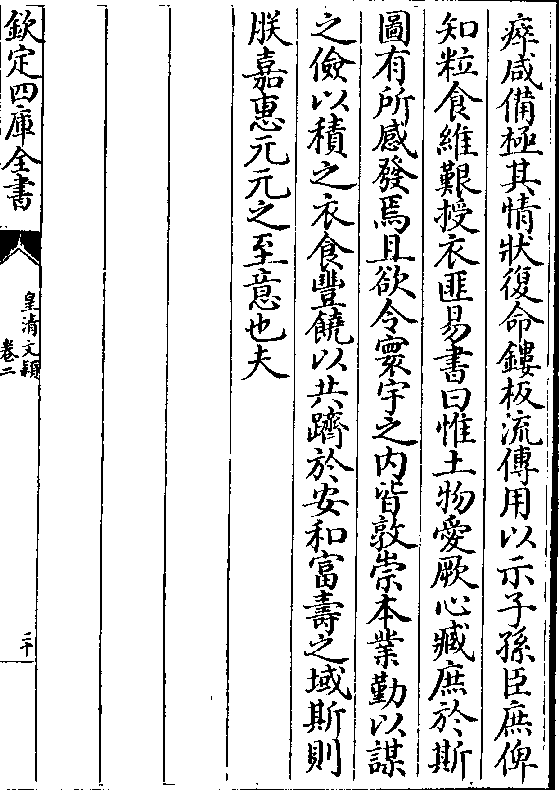 瘁咸備極其情狀復命鏤板流傳用以示子孫臣庶俾
知粒食維艱授衣匪易書曰惟土物愛厥心臧庶於斯
圖有所感發焉且欲令寰宇之内皆敦崇本業勤以謀
之儉以積之衣食豐饒以共躋於安和富壽之域斯則
朕嘉惠元元之至意也夫
欽定四庫全書
皇清文穎
卷二
二十